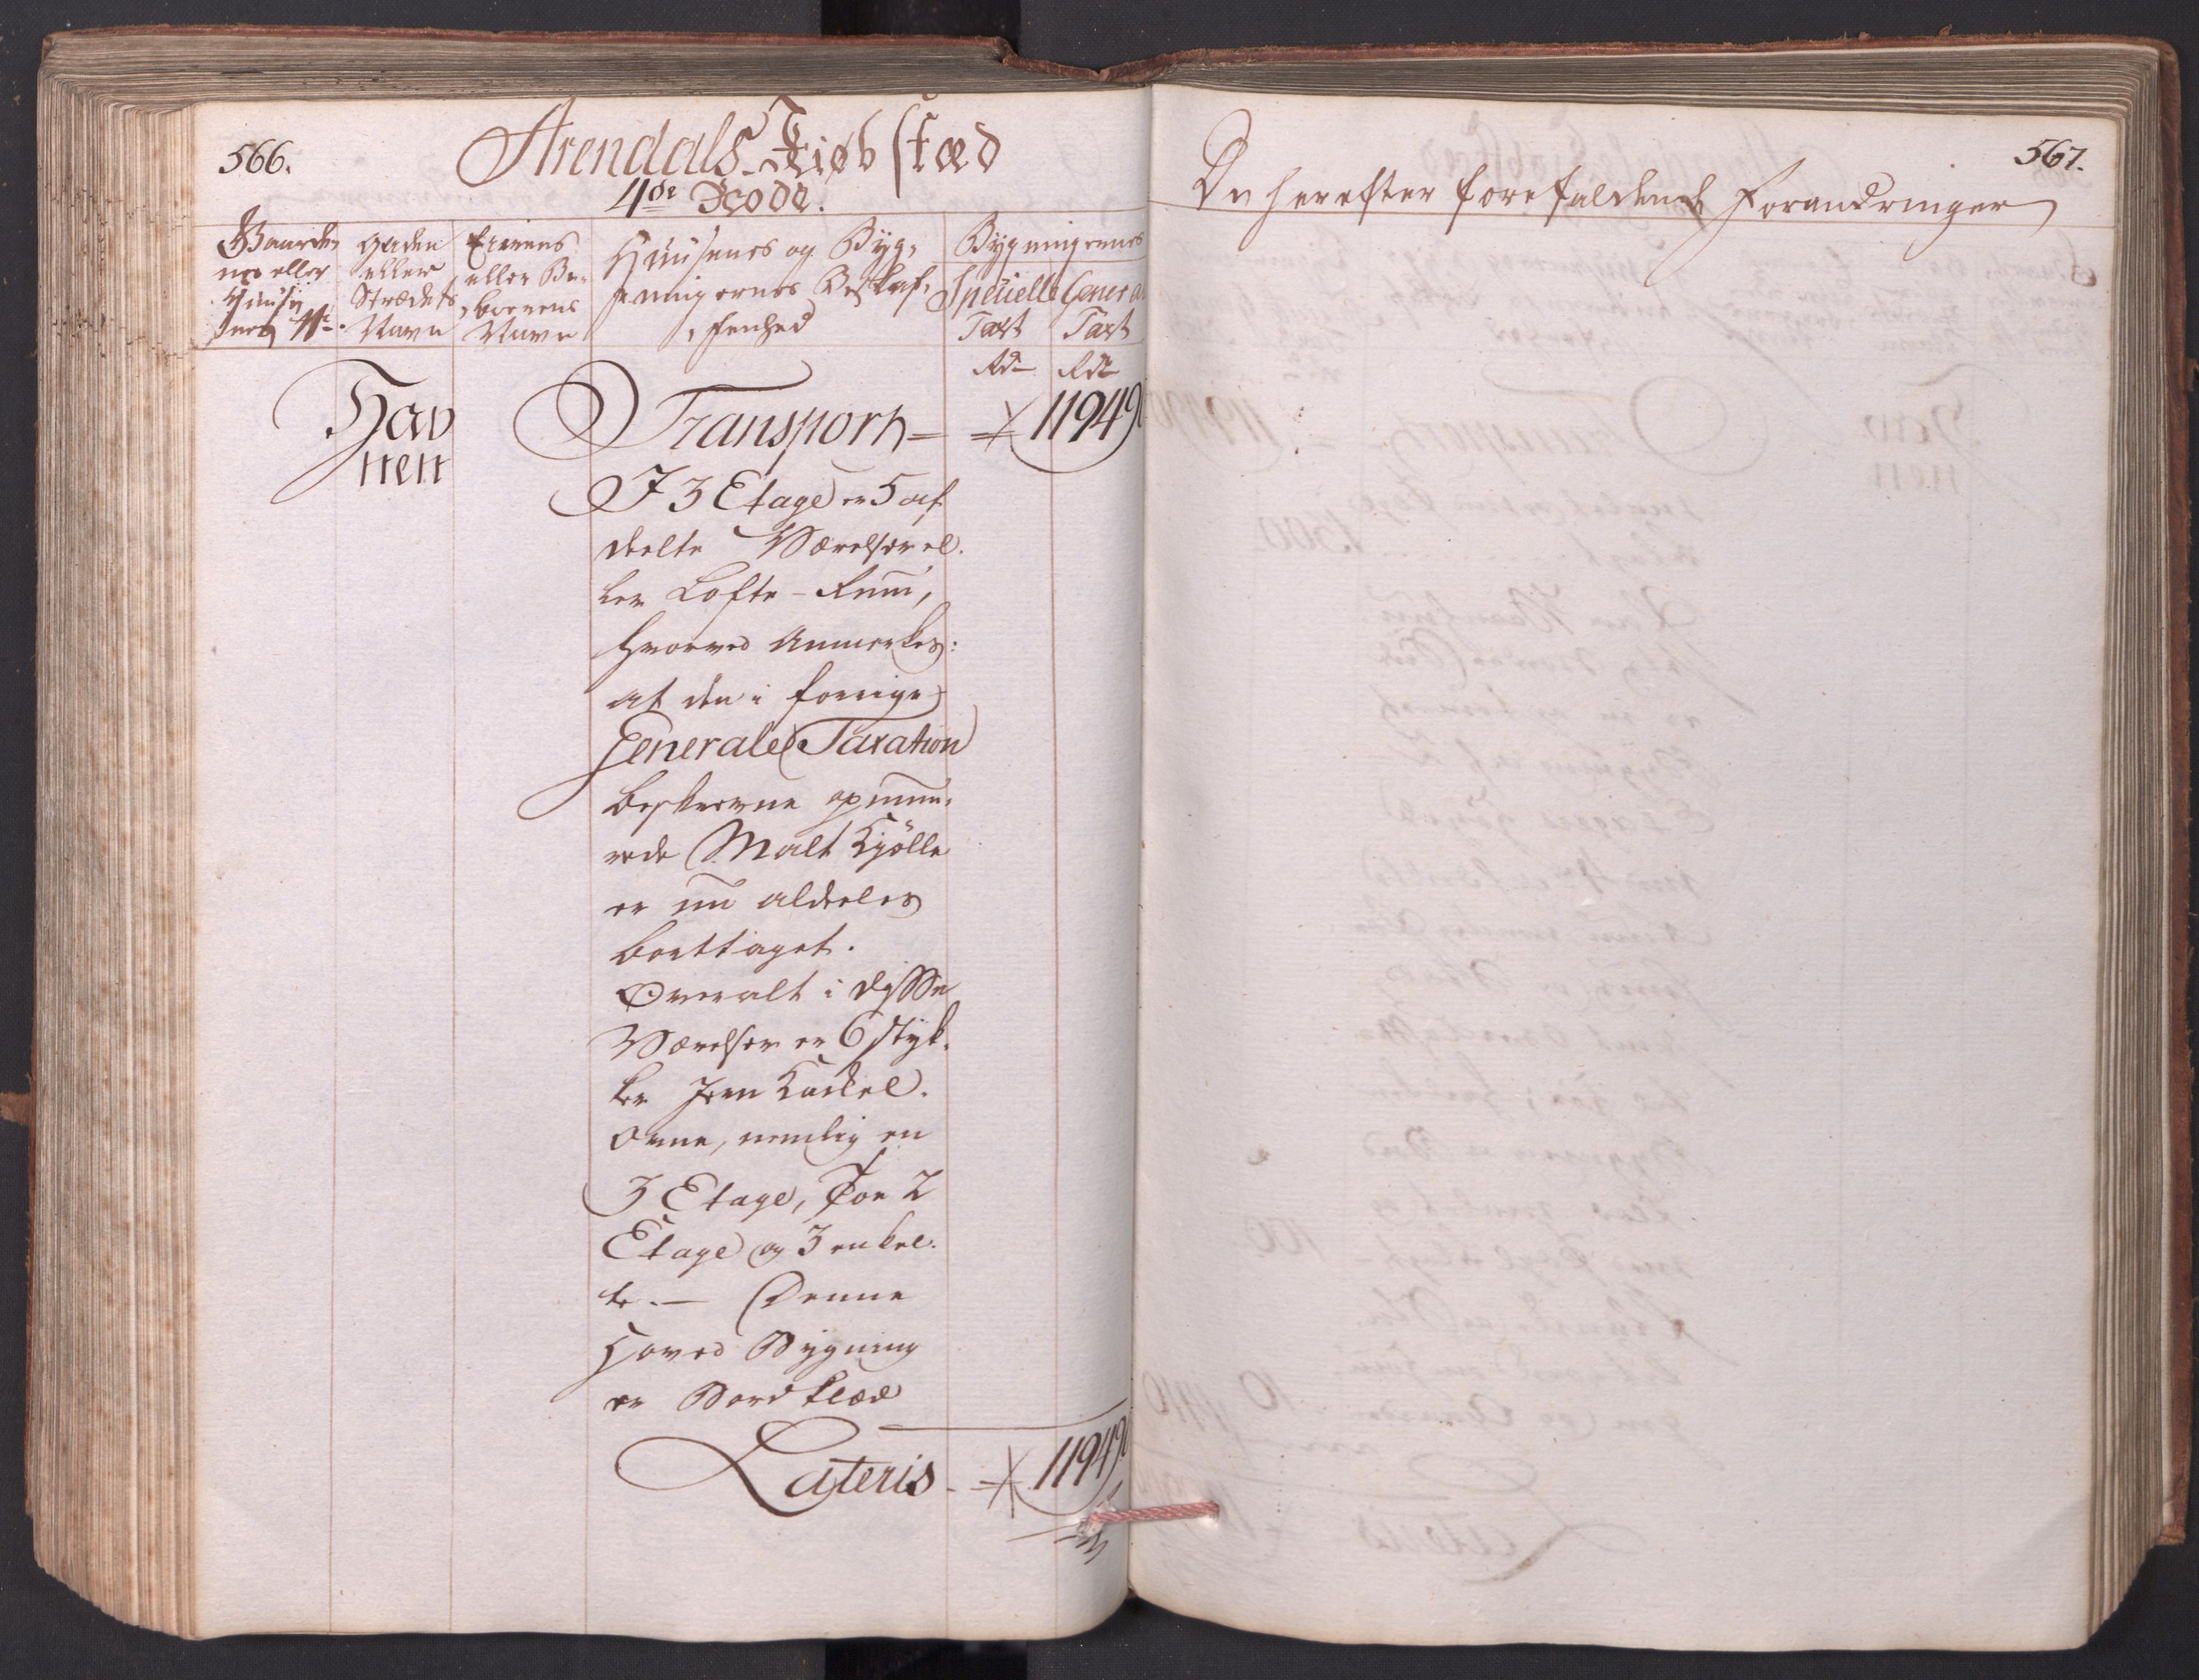 566.
Arendals Kiøbstæd
4de Rode.
Gaarde,
nes eller
Huuse,
nes No.
Gaden
eller
Strædets
Navn
Eierens
eller Be,
boerens
Navn
Huusenes og Byg,
ningernes Beskaf,
fenhed
Bygningernes
Specielle
Taxt
Rdr
General
Taxt
Rdr
Hav
nen
Transport = 11949
I 3 Etage er 5 af
deelte Værelser el.
ler Lofte-Rum,
hvorved Anmerkes:
at den i forrige
Generale Taxation
beskrevne opmuu,
rede Malt Kjölle
er nu aldeeles
borttaget.
Overalt i disse
Værelser er 6 styk.
ker Jern Kackel.
ovne, nemlig en
3 Etage, Toe 2
Etage og 3 enkel.
te. — Denne
Hoved Bygning
er Bordklæd
Lateris - 11949
567.
De herefter forefaldende Forandringer